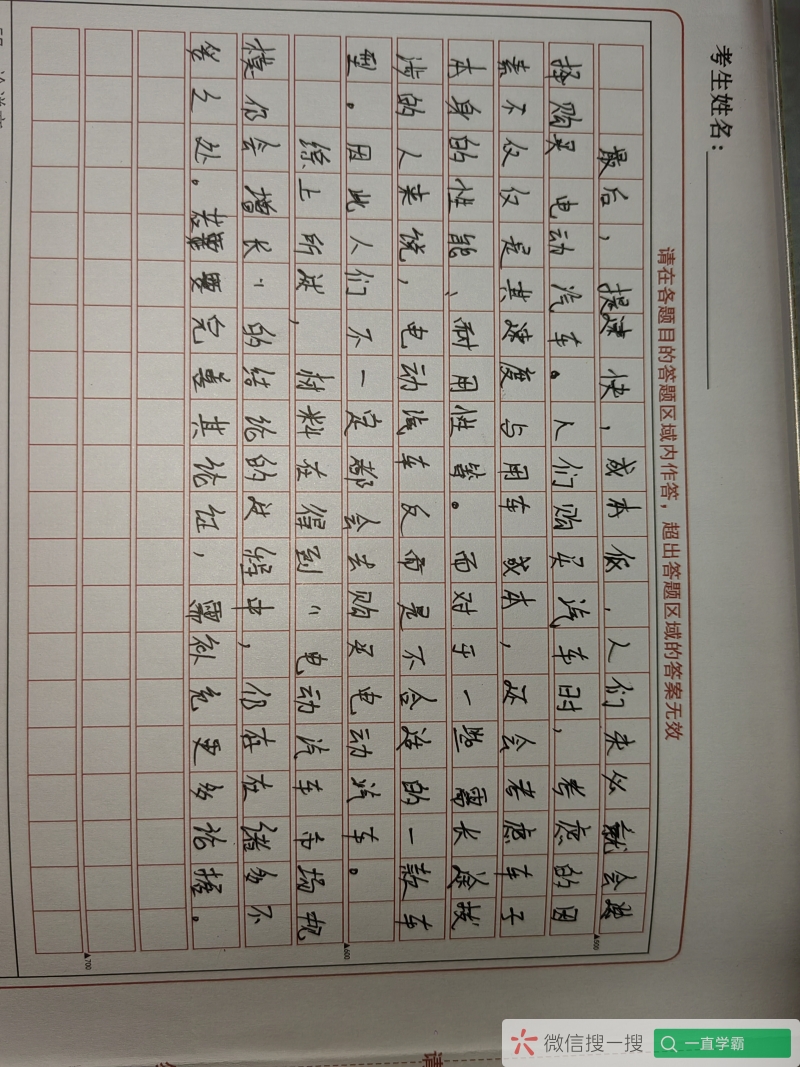 考生姓名：
请在各题目的答题区域内作答，超出答题区域的答案无效
最后，提速快，成本低，人们未必就会选
择购买电动汽车。人们购买汽车时，考虑的因
素不仅仅是其速度与用车成本，还会考虑车子
本身的性能、耐用性等。而对于一些需长途跋
涉的人来说，电动汽车反而是不合适的一款车
型。因此人们不一定都会去购买电动汽车。
综上所述，材料在得到“电动汽车市场规
模仍会增长”的结论的过程中，仍存在诸多不
妥之处。若要完善其论证，需补充更多论据。
▲500
▲600
▲700
请
微信搜一搜
一直学霸